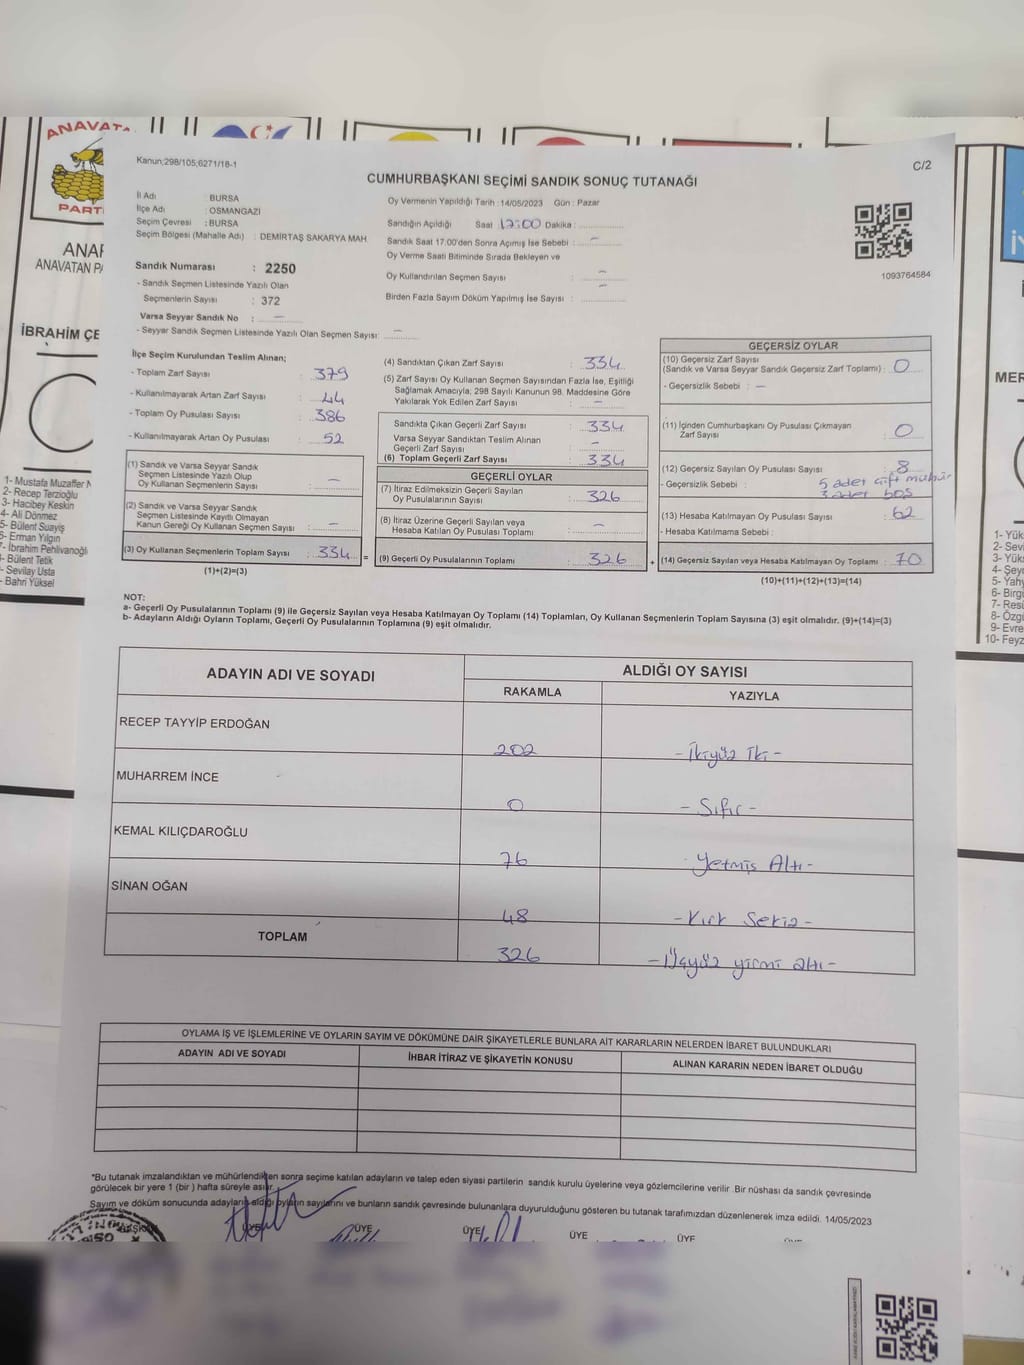 ANAVATA
PARTİ
ANAP
ANAVATAN PA
İBRAHİM ÇE
1- Mustafa Muzaffer
2- Recep Terzioğlu
3- Hacibey Keskin
4- Ali Dönmez
5- Bülent Suayiş
6- Erman Yılgın
7- İbrahim Pehlivanoğlu
8- Bülent Tetik
- Sevilay Usta
- Bahri Yüksel
Kanun;298/105;6271/18-1
C/2
CUMHURBAŞKANI SEÇİMİ SANDIK SONUÇ TUTANAĞI
İl Adı : BURSA
İlçe Adı : OSMANGAZİ
Seçim Çevresi : BURSA
Seçim Bölgesi (Mahalle Adı) : DEMİRTAŞ SAKARYA MAH.
Sandık Numarası : 2250
- Sandık Seçmen Listesinde Yazılı Olan
Seçmenlerin Sayısı : 372
Varsa Seyyar Sandık No : -
- Seyyar Sandık Seçmen Listesinde Yazılı Olan Seçmen Sayısı: -
Oy Vermenin Yapıldığı Tarih : 14/05/2023 Gün : Pazar
Sandığın Açıldığı Saat 17:00 Dakika :
Sandık Saat 17.00'den Sonra Açımış İse Sebebi : -
Oy Verme Saati Bitiminde Sırada Bekleyen ve
Oy Kullandırılan Seçmen Sayısı : -
Birden Fazla Sayım Döküm Yapılmış İse Sayısı : -
1093764584
İlçe Seçim Kurulundan Teslim Alınan;
- Toplam Zarf Sayısı : 379
- Kullanılmayarak Artan Zarf Sayısı : 44
- Toplam Oy Pusulası Sayısı : 386
- Kullanılmayarak Artan Oy Pusulası : 52
(1) Sandık ve Varsa Seyyar Sandık
Seçmen Listesinde Yazılı Olup
Oy Kullanan Seçmenlerin Sayısı : -
(2) Sandık ve Varsa Seyyar Sandık
Seçmen Listesinde Kayıtlı Olmayan
Kanun Gereği Oy Kullanan Seçmen Sayısı : -
(3) Oy Kullanan Seçmenlerin Toplam Sayısı : 334 =
(1)+(2)=(3)
(4) Sandıktan Çıkan Zarf Sayısı : 334
(5) Zarf Sayısı Oy Kullanan Seçmen Sayısından Fazla İse, Eşitliği
Sağlamak Amacıyla; 298 Sayılı Kanunun 98. Maddesine Göre
Yakılarak Yok Edilen Zarf Sayısı : -
Sandıkta Çıkan Geçerli Zarf Sayısı : 334
Varsa Seyyar Sandıktan Teslim Alınan
Geçerli Zarf Sayısı : -
(6) Toplam Geçerli Zarf Sayısı : 334
GEÇERLİ OYLAR
(7) İtiraz Edilmeksizin Geçerli Sayılan
Oy Pusulasının Sayısı : 326
(8) İtiraz Üzerine Geçerli Sayılan veya
Hesaba Katılan Oy Pusulası Toplamı : -
(9) Geçerli Oy Pusulalarının Toplamı : 326 +
GEÇERSİZ OYLAR
(10) Geçersiz Zarf Sayısı
(Sandık ve Varsa Seyyar Sandık Geçersiz Zarf Toplamı) : 0
- Geçersizlik Sebebi : -
(11) İçinden Cumhurbaşkanı Oy Pusulası Çıkmayan
Zarf Sayısı : 0
(12) Geçersiz Sayılan Oy Pusulası Sayısı : 8
- Geçersizlik Sebebi : 5 adet çift mühür
3 adet boş
(13) Hesaba Katılmayan Oy Pusulası Sayısı : 62
- Hesaba Katılmama Sebebi :
(14) Geçersiz Sayılan veya Hesaba Katılmayan Oy Toplamı : 70
(10)+(11)+(12)+(13)=(14)
NOT:
a- Geçerli Oy Pusulalarının Toplamı (9) ile Geçersiz Sayılan veya Hesaba Katılmayan Oy Toplamı (14) Toplamları, Oy Kullanan Seçmenlerin Toplam Sayısına (3) eşit olmalıdır. (9)+(14)=(3)
b- Adayların Aldığı Oyların Toplamı, Geçerli Oy Pusulalarının Toplamına (9) eşit olmalıdır.
ADAYIN ADI VE SOYADI ALDIĞI OY SAYISI
RAKAMLA YAZIYLA
RECEP TAYYİP ERDOĞAN 202 - İkiyüz İki -
MUHARREM İNCE 0 - Sıfır -
KEMAL KILIÇDAROĞLU 76 - Yetmiş Altı -
SİNAN OĞAN 48 - Kırk Sekiz -
TOPLAM 326 - Üçyüz yirmi altı -
OYLAMA İŞ VE İŞLEMLERİNE VE OYLARIN SAYIM VE DÖKÜMÜNE DAİR ŞİKAYETLERLE BUNLARA AİT KARARLARIN NELERDEN İBARET BULUNDUKLARI
ADAYIN ADI VE SOYADI İHBAR İTİRAZ VE ŞİKAYETİN KONUSU ALINAN KARARIN NEDEN İBARET OLDUĞU
*Bu tutanak imzalandıktan ve mühürlendikten sonra seçime katılan adayların ve talep eden siyasi partilerin sandık kurulu üyelerine veya gözlemcilerine verilir. Bir nüshası da sandık çevresinde
görülecek bir yere 1 (bir) hafta süreyle asılır.
Sayım ve döküm sonucunda adayların aldığı oyların sayılarını ve bunların sandık çevresinde bulunanlara duyurulduğunu gösteren bu tutanak tarafımızdan düzenlenerek imza edildi. 14/05/2023
ÜYE ÜYE ÜYE ÜYE
MER
1- Yük
2- Sevi
3- Yük
4- Şey
5- Yah
6- Birg
7- Resu
8- Özg
9- Evre
10- Feyz